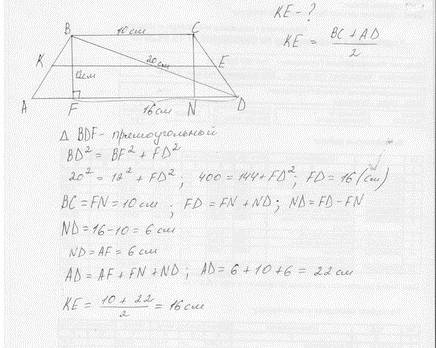 KE - ?
KE = (BC + AD)/2
B 10см C
K 20см E
12см
A F 16см N D
Δ BDF - прямоугольный
BD² = BF² + FD²
20² = 12² + FD² ; 400 = 144 + FD² ; FD = 16 (см)
BC = FN = 10 см ; FD = FN + ND ; ND = FD - FN
ND = 16 - 10 = 6 см
ND = AF = 6 см
AD = AF + FN + ND ; AD = 6 + 10 + 6 = 22 см
KE = (10 + 22)/2 = 16 см